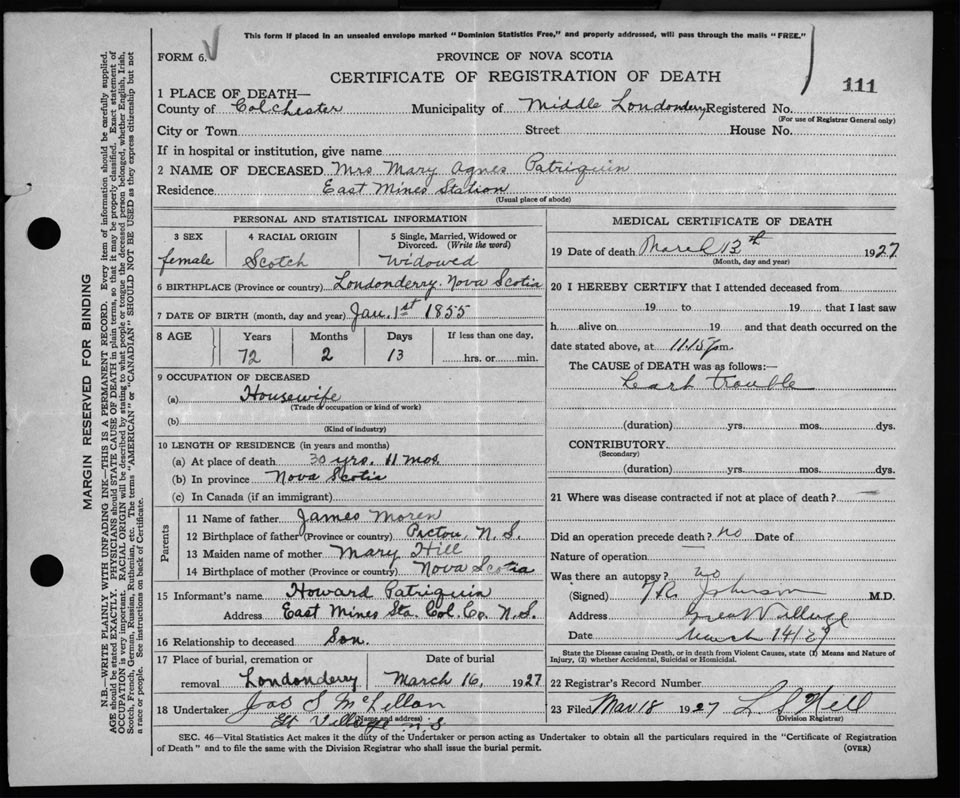 This form if placed in an unsealed envelope marked "Dominion Statistics Free," and properly addressed, will pass through the mails "FREE."
FORM 6.
PROVINCE OF NOVA SCOTIA
CERTIFICATE OF REGISTRATION OF DEATH
111
1 PLACE OF DEATH—
County of Colchester Municipality of Middle Londonderry Registered No.
(For use of Registrar General only)
City or Town Street House No.
If in hospital or institution, give name
2 NAME OF DECEASED Mrs Mary Agnes Patriquin
Residence East Mines Station
(Usual place of abode)
PERSONAL AND STATISTICAL INFORMATION
3 SEX 4 RACIAL ORIGIN 5 Single, Married, Widowed or Divorced. (Write the word)
female Scotch Widowed
6 BIRTHPLACE (Province or country) Londonderry. Nova Scotia
7 DATE OF BIRTH (month, day and year) Jan. 1st 1855
8 AGE Years Months Days If less than one day,
72 2 13 hrs. or min.
9 OCCUPATION OF DECEASED
(a) Housewife
(Trade or occupation or kind of work)
(b)
(Kind of industry)
10 LENGTH OF RESIDENCE (in years and months)
(a) At place of death 30 yrs. 11 mos.
(b) In province Nova Scotia
(c) In Canada (if an immigrant)
Parents
11 Name of father James Moren
12 Birthplace of father (Province or country) Pictou, N. S.
13 Maiden name of mother Mary Hill
14 Birthplace of mother (Province or country) Nova Scotia
15 Informant's name Howard Patriquin
Address East Mines Sta. Col. Co. N. S.
16 Relationship to deceased Son.
17 Place of burial, cremation or Date of burial
removal Londonderry March 16, 1927
18 Undertaker Jas S McLellan
(Name and address)
Gt Village N.S
MEDICAL CERTIFICATE OF DEATH
19 Date of death March 13th 1927
(Month, day and year)
20 I HEREBY CERTIFY that I attended deceased from
19 to 19 that I last saw
h alive on 19 and that death occurred on the
date stated above, at 11.15 p.m.
The CAUSE of DEATH was as follows:—
trouble
(duration) yrs. mos. dys.
CONTRIBUTORY
(Secondary)
(duration) yrs. mos. dys.
21 Where was disease contracted if not at place of death?
Did an operation precede death? no Date of
Nature of operation
Was there an autopsy? no
(Signed) Johnson M.D.
Address Great Village
Date March 14/27
State the Disease causing Death, or in death from Violent Causes, state (1) Means and Nature of
Injury, (2) whether Accidental, Suicidal or Homicidal.
22 Registrar's Record Number
23 Filed Mar 18 1927 L S Hill
(Division Registrar)
SEC. 46—Vital Statistics Act makes it the duty of the Undertaker or person acting as Undertaker to obtain all the particulars required in the "Certificate of Registration
of Death" and to file the same with the Division Registrar who shall issue the burial permit. (OVER)
MARGIN RESERVED FOR BINDING
N.B.—WRITE PLAINLY WITH UNFADING INK—THIS IS A PERMANENT RECORD. Every item of information should be carefully supplied.
AGE should be stated EXACTLY. PHYSICIANS should STATE CAUSE OF DEATH in plain terms, so that it may be properly classified. Exact statement of
OCCUPATION is very important. RACIAL ORIGIN will be described by stating to what people or tongue the deceased person belonged, whether English, Irish,
Scotch, French, German, Russian, Ruthenian, etc. The terms "AMERICAN" or "CANADIAN" SHOULD NOT BE USED as they express citizenship but not
a race or people. See instructions on back of Certificate.